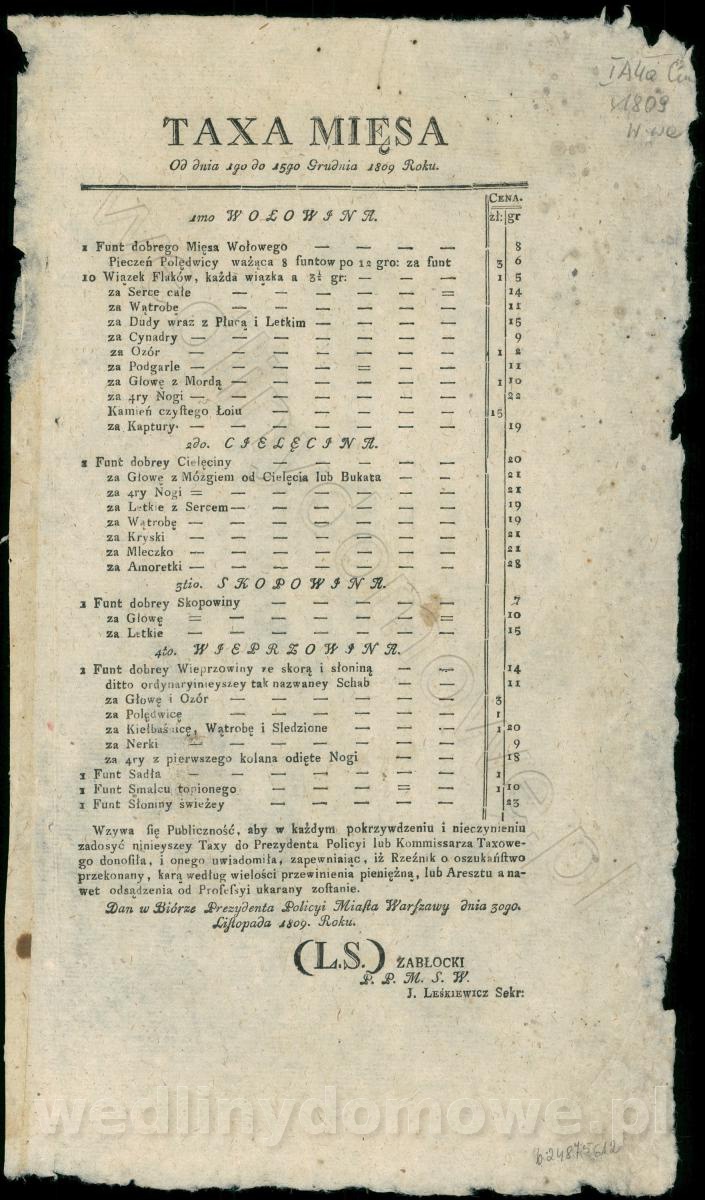 IA4a
1809
W-wa
TAXA MIĘSA
Od dnia 1go do 15go Grudnia 1809 Roku.
CENA.
zł: gr
1mo WOŁOWINA.
1 Funt dobrego Mięsa Wołowego — — — — 8
Pieczeń Polędwicy ważąca 8 funtow po 12 gro: za funt 3 6
10 Wiązek Flaków, każda wiązka a 3½ gr: — — — 1 5
za Serce całe — — — — — = 14
za Wątrobę — — — — — — 11
za Dudy wraz z Płucą i Letkim — — — — 15
za Cynadry — — — — — — — 9
za Ozór — — — — — — — 1 2
za Podgarle — — — — = — — 11
za Głowę z Mordą — — — — — — 1 10
za 4ry Nogi — — — — — — — 22
Kamień czyſtego Łoiu — — — — — 15
za Kaptury· — — — — — — — 19
2do. CIELĘCINA.
1 Funt dobrey Cielęciny — — — — — 20
za Głowę z Mózgiem od Cielęcia lub Bukata — — 21
za 4ry Nogi = — — — — — — 21
za Letkie z Sercem — — — — — — 19
za Wątrobę — — — — — — — 19
za Kryski — — — — — — — 21
za Mleczko — — — — — — — 21
za Amoretki — — — — — — — 28
3tio. SKOPOWINA.
1 Funt dobrey Skopowiny — — — — — 7
za Głowę = — — — — — = 10
za Letkie — — — — — — — 15
4to. WIEPRZOWINA.
1 Funt dobrey Wieprzowiny ze skorą i słoniną — — 14
ditto ordynaryinieyszey tak nazwaney Schab — — 11
za Głowę i Ozór — — — — — — 3
za Polędwicę — — — — — — 1
za Kiełbaśnicę, Wątrobę i Sledzione — — — 1 20
za Nerki — — — — — — — 9
za 4ry z pierwszego kolana odięte Nogi — — — 18
1 Funt Sadła — — — — — — — 1
1 Funt Smalcu topionego — — — = — 1 10
1 Funt Słoniny świeżey — — — — — 23
Wzywa ſię Publiczność, aby w każdym pokrzywdzeniu i nieczynieniu
zadosyć ninieyszey Taxy do Prezydenta Policyi lub Kommissarza Taxowe-
go donoſiła, i onego uwiadomiła, zapewniaiąc, iż Rzeźnik o oszukańſtwo
przekonany, karą według wielości przewinienia pieniężną, lub Aresztu a na-
wet odsądzenia od Profeſsyi ukarany zoſtanie.
Dan w Biórze Prezydenta Policyi Miaſta Warſzawy dnia 30go.
Liſtopada 1809. Roku.
(L.S.) ZABŁOCKI
P. P. M. S. W.
J. LEŚKIEWICZ Sekr:
wedlinydomowe.pl
wedlinydomowe.pl
b24875612